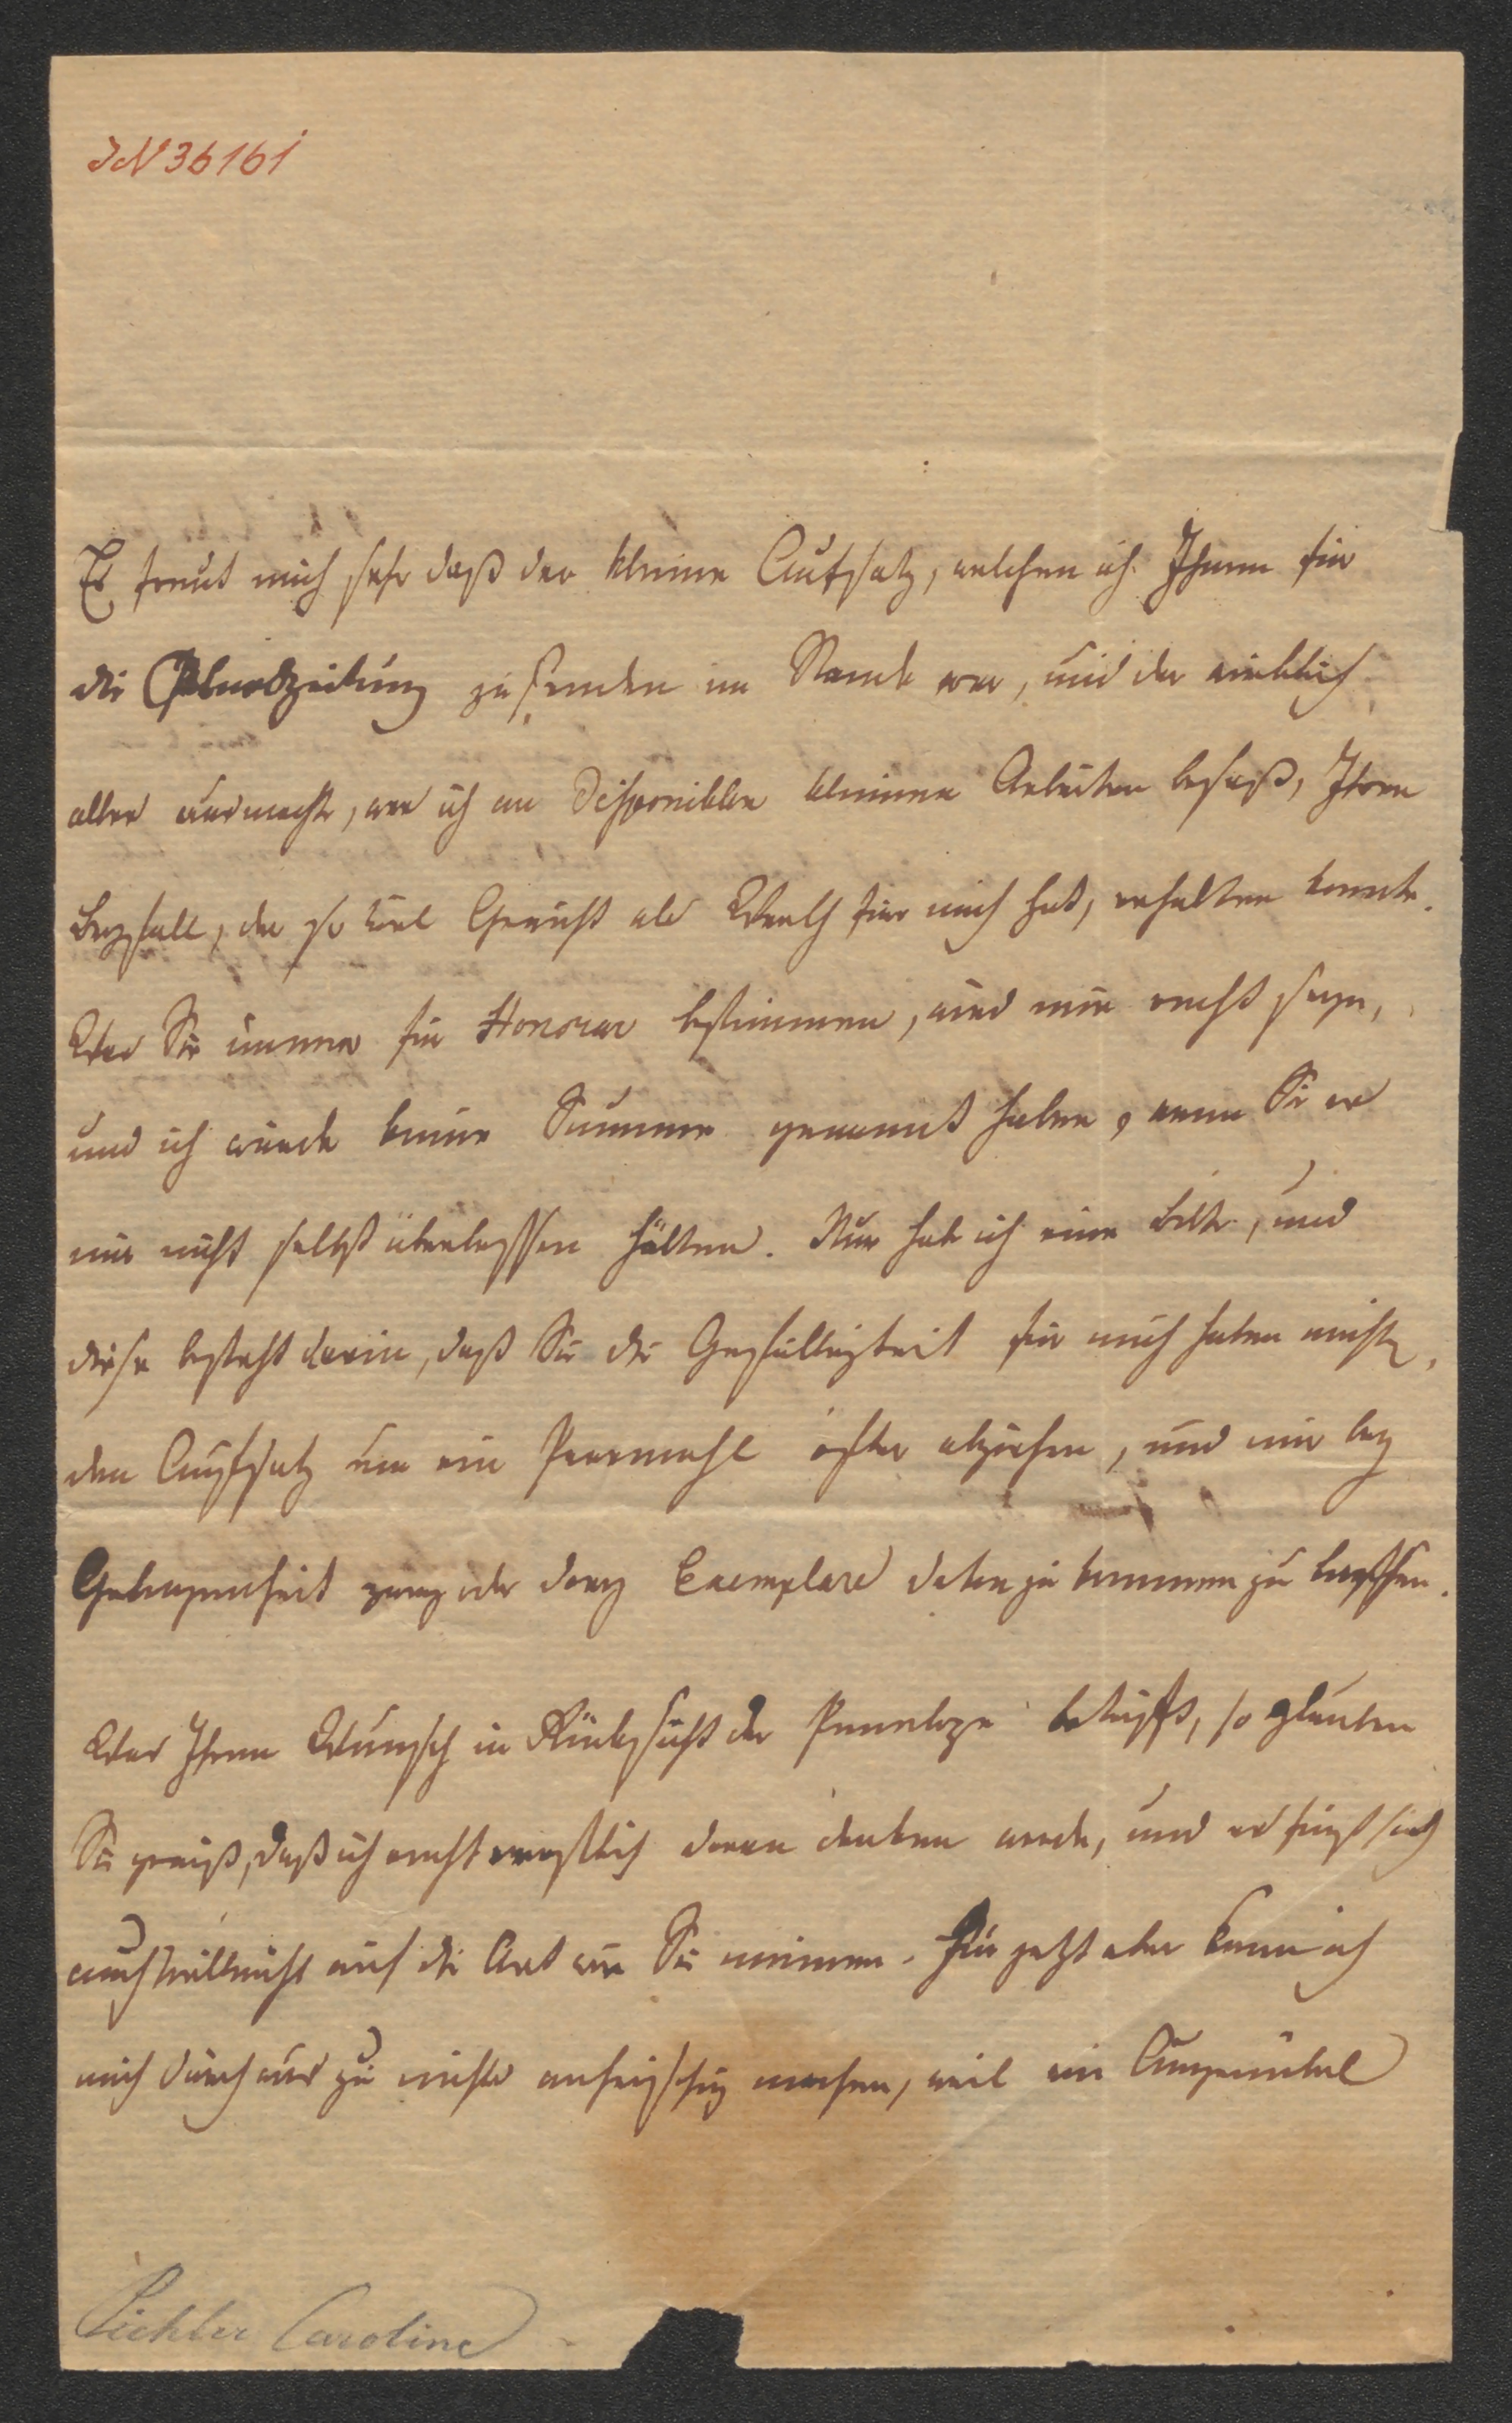 IN 36161
Es freut mich sehr daß der kleine Aufsatz, welchen ich Ihnen für
die Abendzeitung zu senden im Stande war, und der wirklich
alles ausmachte, was ich an disponiblen kleinen Arbeiten besaß, Ihren
Beyfall, der so viel Gewicht als Werth für mich hat, erhalten konnte.
Was Sie immer für Honorar bestimmen, wird mir recht seyn,
und ich würde keine Summe genannt haben, wenn Sie es
mir nicht selbst überlassen hätten. Nur hab ich eine Bitte, und
diese besteht darin, daß Sie die Gefälligkeit für mich haben möchten,
den Aufsatz um ein Paarmahl öfter abziehen, und mir bey
Gelegenheit zwey oder drey Exemplare davon zu kommen zu lassen.
Was Ihren Wunsch in Rücksicht der Penelope betrifft, so glauben
Sie gewiß, daß ich recht ernstlich daran denken werde, und es fügt sich
auch vielleicht auf die Art wie Sie meinen. Für jetzt aber kann ich
mich durchaus zu nichts anheischig machen, weil ein Augenübel
Pichler Caroline